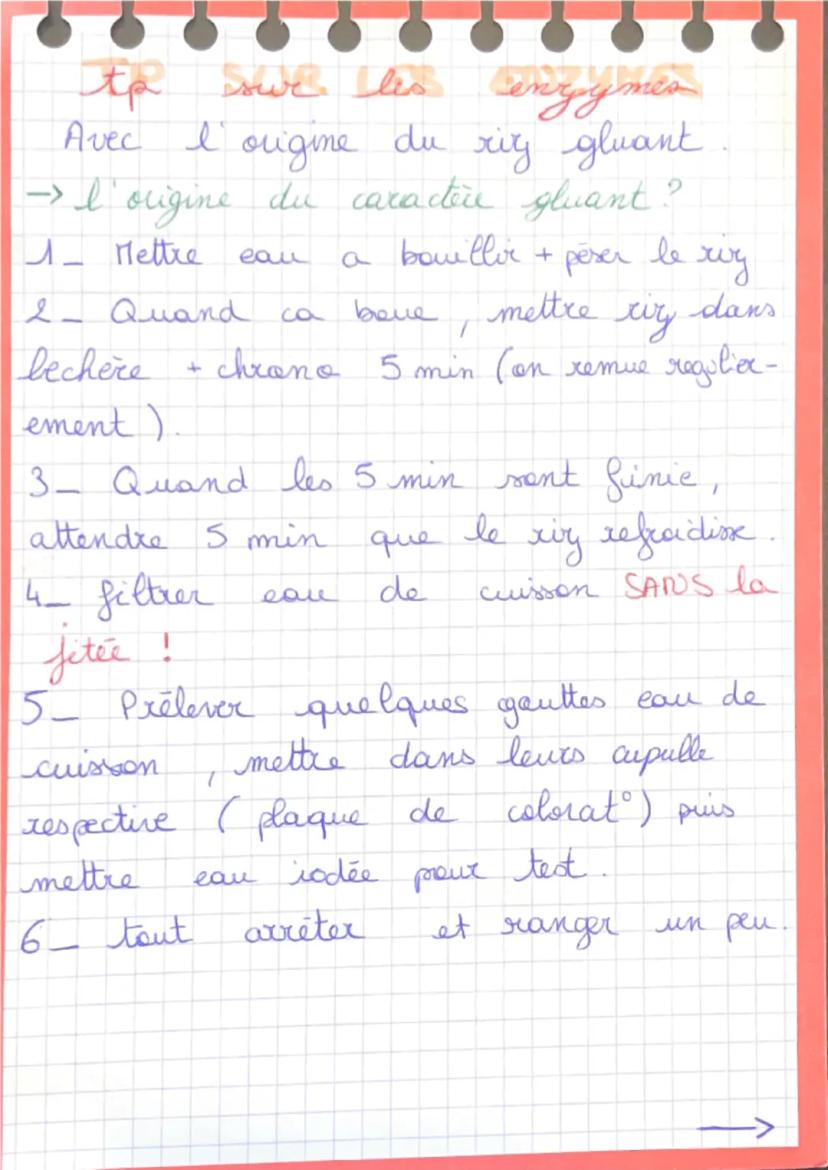 tp sur les enzymes
Avec l'origine du riz gluant.
→ l'origine du caractère gluant ?
1_ Mettre eau a bouillir + péser le riz
2_ Quand ca boue, mettre riz dans
bechère + chrono 5 min (on remue regulier-
ement).
3_ Quand les 5 min sont finie,
attendre 5 min que le riz refroidisse.
4_ filtrer eau de cuisson SANS la
jetée !
5_ Prélever quelques gouttes eau de
cuisson, mettre dans leurs cupulle
respective (plaque de colorat°) puis
mettre eau iodée pour test.
6_ tout arrêter et ranger un peu.
→